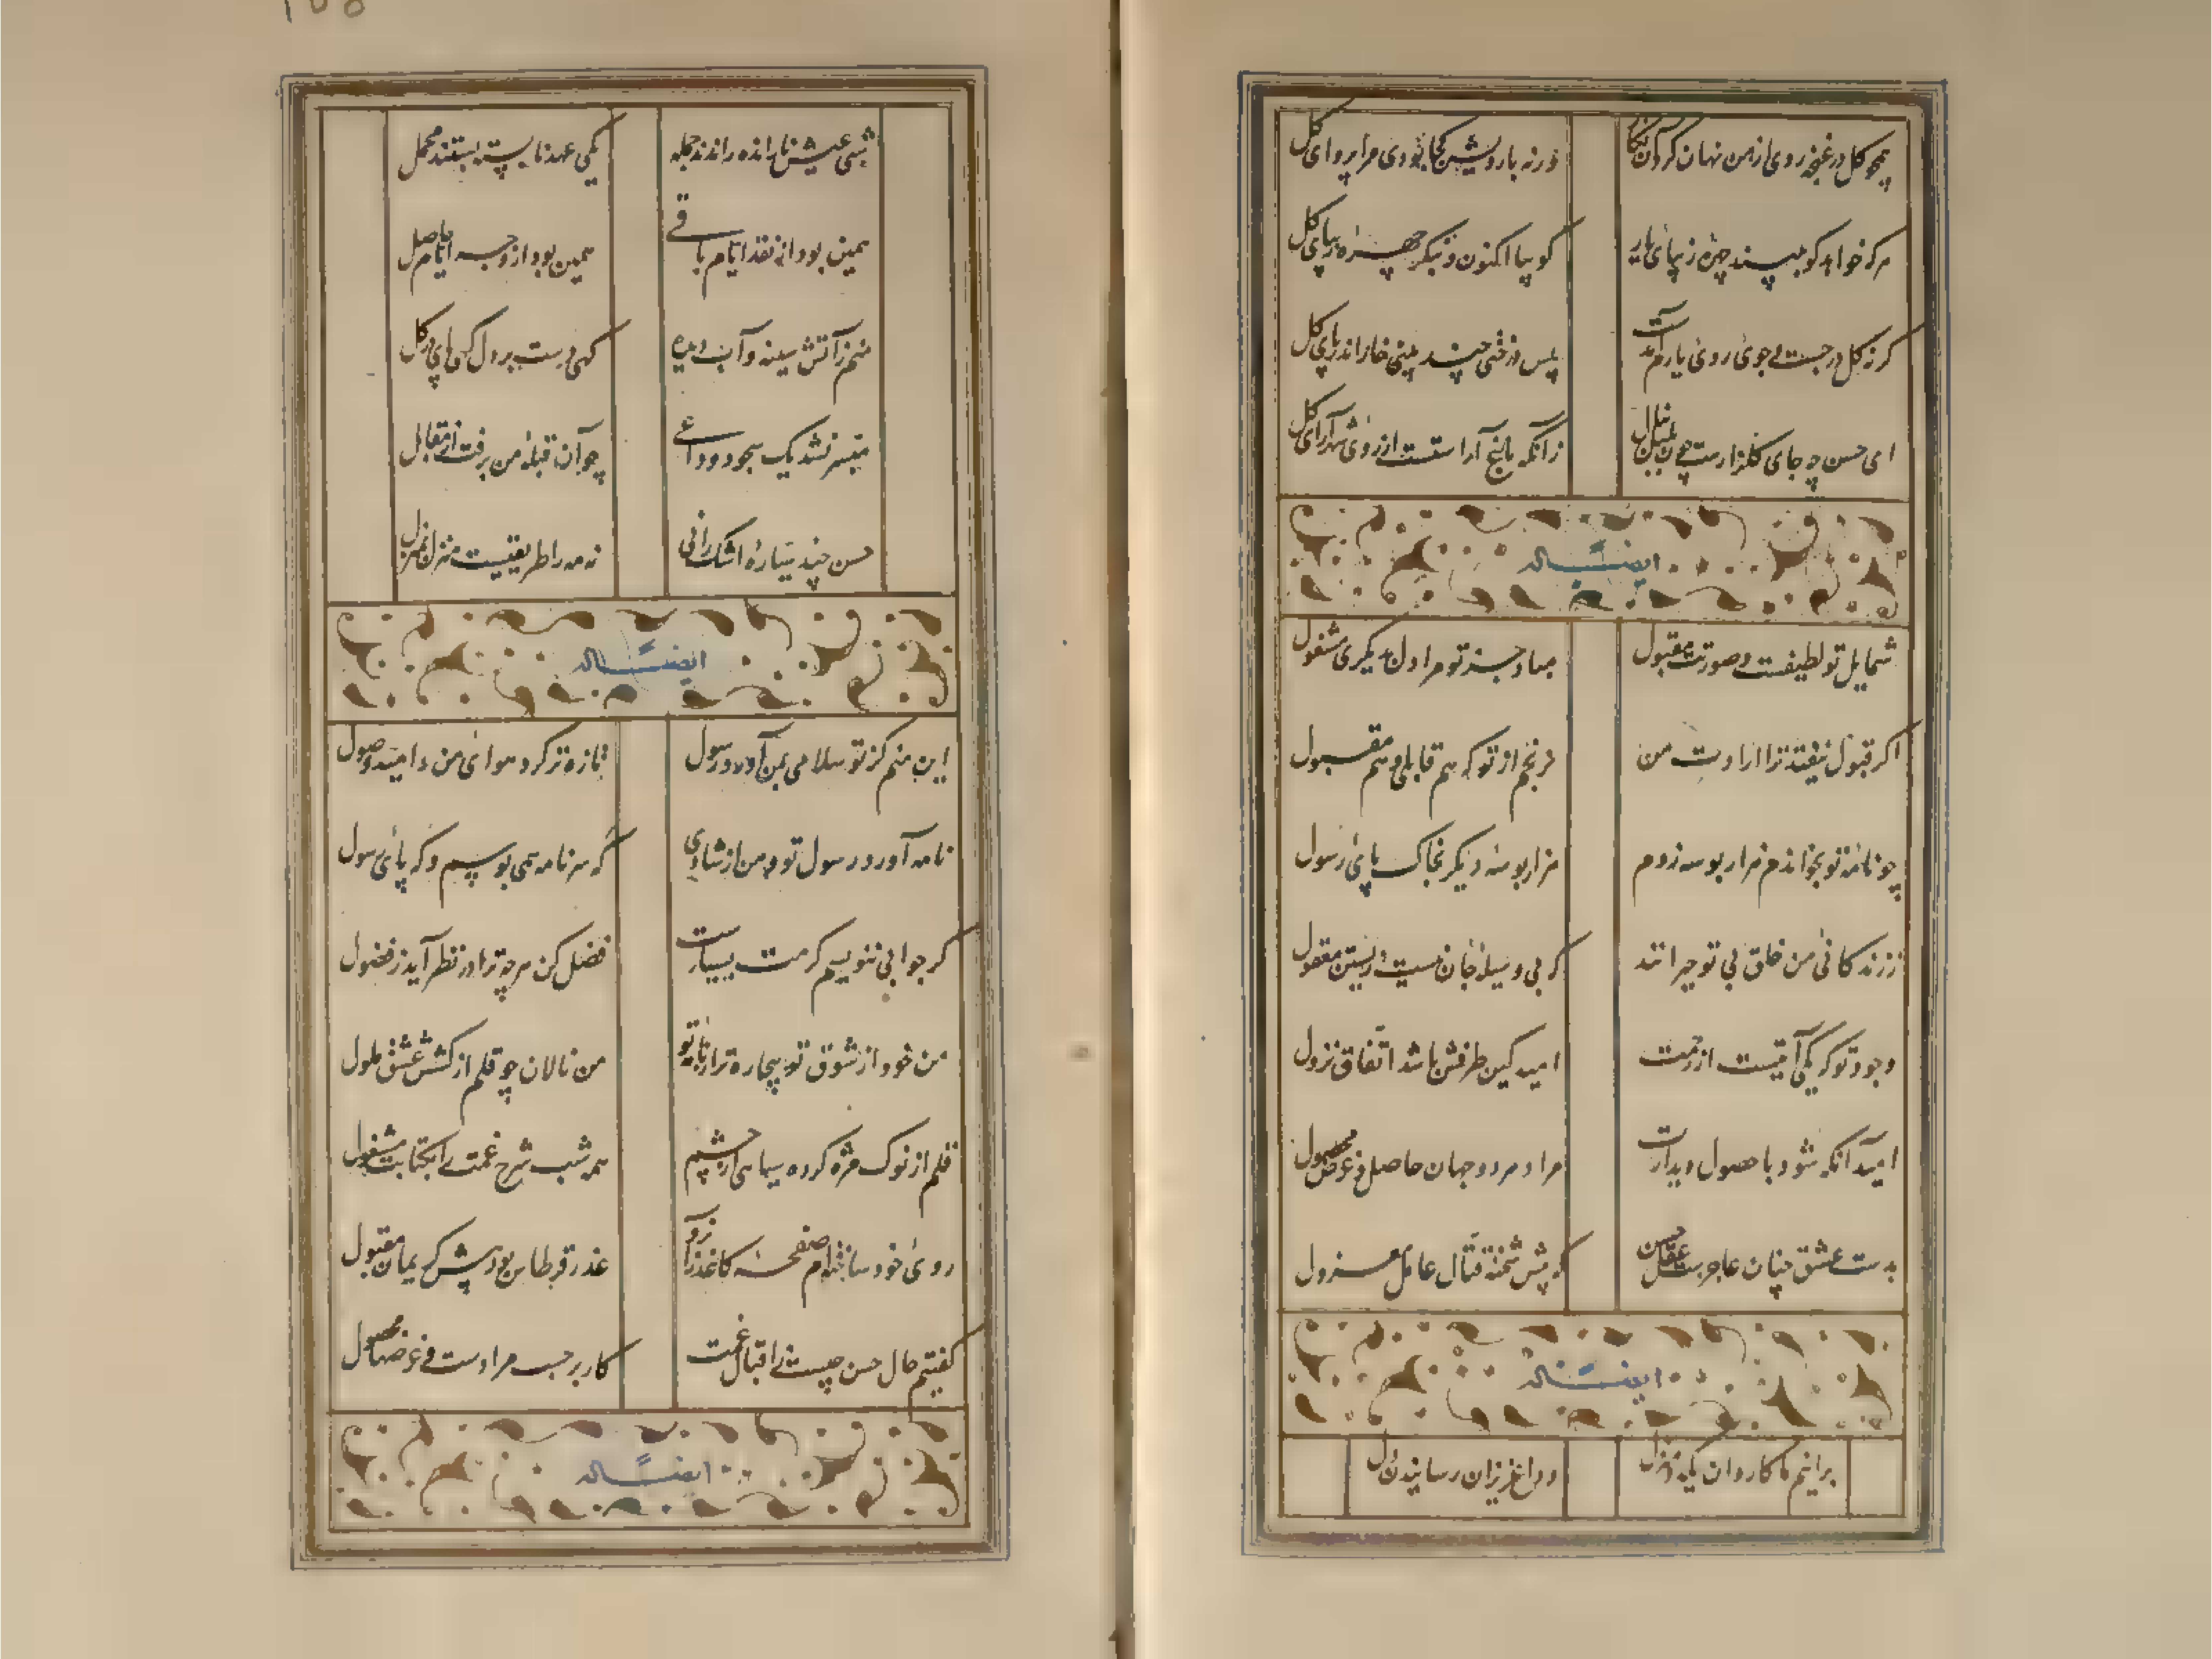 همچو گل در غنچه روی از من نهان کرد آن نگار
ورنه با رویش کجا بودی مرا پروای گل
هرکه خواهد کو ببیند چهره زیبای یار
گو بیا اکنون و بنگر چهره زیبای گل
گرنه گل در جست و جوی روی یارم آمدست
پس
ای حسن چه جای گلزارست چون بلبل بنال
زانکه باغ آراستست از روی شهرآرای گل
ایضا له
شمایل تو لطیفست و صورتت مقبول
مباد جز تو مرا دل بدیگری مشغول
اگر قبول نیفتد ترا ارادت من
نرنجم از تو که هم قابلی و هم مقبول
چو نامهٔ تو بخواندم هزار بوسه زدم
هزار بوسهٔ دیگر بخاک پای رسول
ز زندگانی من خلق بی تو حیرانند
که بی وسیلهٔ جان نیست زیستن معقول
وجود تو که یکی آیتیست از رحمت
امید کین طرفش باشد اتفاق نزول
امید آنکه شود با حصول دیدارت
مراد هر دو جهان حاصل و غرض محصول
بدست عشق چنان عاجزست عقل حسن
که پیش شحنهٔ قتال عامل معزول
ایضا له
برانیم با کاروان یک دو منزل
وداع عزیزان رسانید بر دل
شبی عیش ناراندهٔ راندند جمله
یکی عهد نابسته بستند محمل
همین بود از نقد ایام باقی
همین بود از وجه ایام حاصل
منم ز آتش سینه و آب دیده
گهی دست بر دل گهی پای در گل
میسر نشد یک سجود وداعی
چو آن قبلهٔ من برفت از مقابل
حسن چند سیارهٔ اشک رانی
نه مه را طریقیست منزل بمنزل
ایضا له
این منم کز تو سلامی بمن آورد رسول
تازه تر کرد هوای من و امید وصول
نامه آورد رسول تو و من از شادی
گه سر نامه همی بوسم و گه پای رسول
گر جوابی ننویسم کرمت بسیارست
فضل کن هرچه ترا در نظر آید ز فضول
من خود از شوق تو بیچاره تر از نامهٔ تو
من نالان چو قلم از کشش عشق ملول
قلم از نوک مژه کرده سیاهی از چشم
همه شب شرح غمت را بکتابت مشغول
روی خود ساخته‌ام صفحهٔ کاغذ زرد
عذر قرطاس بود پیش کریمان مقبول
گفتیم حال حسن چیست ز اقبال غمت
کار بر حسب مرادست و غرضها محصول
ایضا له